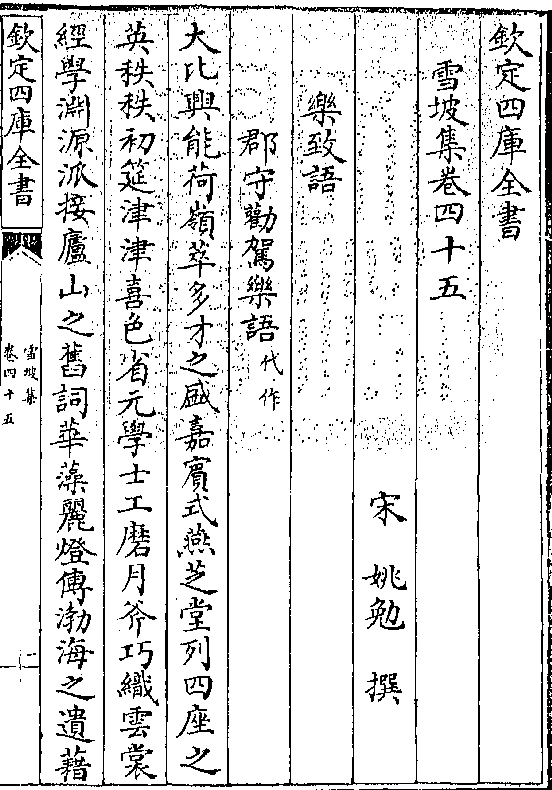 欽定四庫全書
雪坡集卷四十五
宋 姚勉 撰
樂致語
郡守勸駕樂語代作
大比興能荷嶺萃多才之盛嘉賓式燕芝堂列四座之
英秩秩初筵津津喜色省元學士工磨月斧巧織雲裳
經學淵源派接廬山之舊詞華藻麗燈傳渤海之遺藉
欽定四庫全書
雪坡集
卷四十五
一